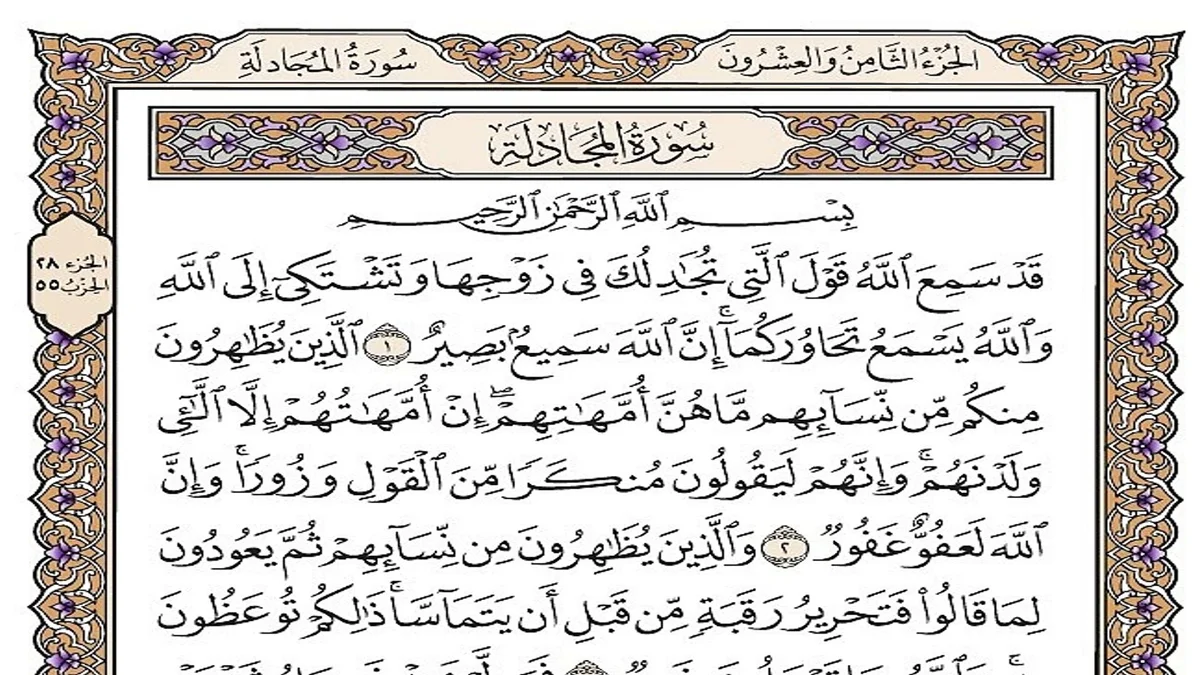 الجُزْءُ الثَّامِنُ وَالعِشْرُونَ
سُورَةُ المُجَادلَةِ
سُورَةُ المُجَادلَةِ
الجزء ٢٨
الحزب ٥٥
بِسْمِ ٱللَّهِ ٱلرَّحْمَٰنِ ٱلرَّحِيمِ
قَدْ سَمِعَ ٱللَّهُ قَوْلَ ٱلَّتِى تُجَٰدِلُكَ فِى زَوْجِهَا وَتَشْتَكِىٓ إِلَى ٱللَّهِ
وَٱللَّهُ يَسْمَعُ تَحَاوُرَكُمَآ ۚ إِنَّ ٱللَّهَ سَمِيعٌۢ بَصِيرٌ ١ ٱلَّذِينَ يُظَٰهِرُونَ
مِنكُم مِّن نِّسَآئِهِم مَّا هُنَّ أُمَّهَٰتِهِمْ ۖ إِنْ أُمَّهَٰتُهُمْ إِلَّا ٱلَّٰٓـِٔى
وَلَدْنَهُمْ ۚ وَإِنَّهُمْ لَيَقُولُونَ مُنكَرًا مِّنَ ٱلْقَوْلِ وَزُورًا ۚ وَإِنَّ
ٱللَّهَ لَعَفُوٌّ غَفُورٌ ٢ وَٱلَّذِينَ يُظَٰهِرُونَ مِن نِّسَآئِهِمْ ثُمَّ يَعُودُونَ
لِمَا قَالُوا۟ فَتَحْرِيرُ رَقَبَةٍ مِّن قَبْلِ أَن يَتَمَآسَّا ۚ ذَٰلِكُمْ تُوعَظُونَ